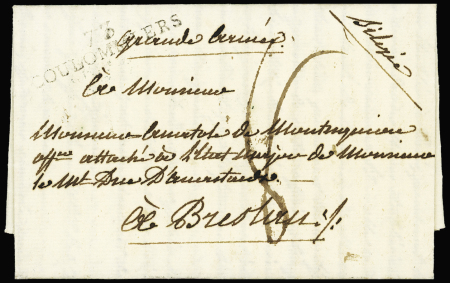 73
COULOMMIERS
Grande Armée
Silésie
A Monsieur
Monsieur Anatole de Montesquiou
offer attaché à l'Etat major de Monsieur
le Mal Duc D'auerstaedt
à Breslau